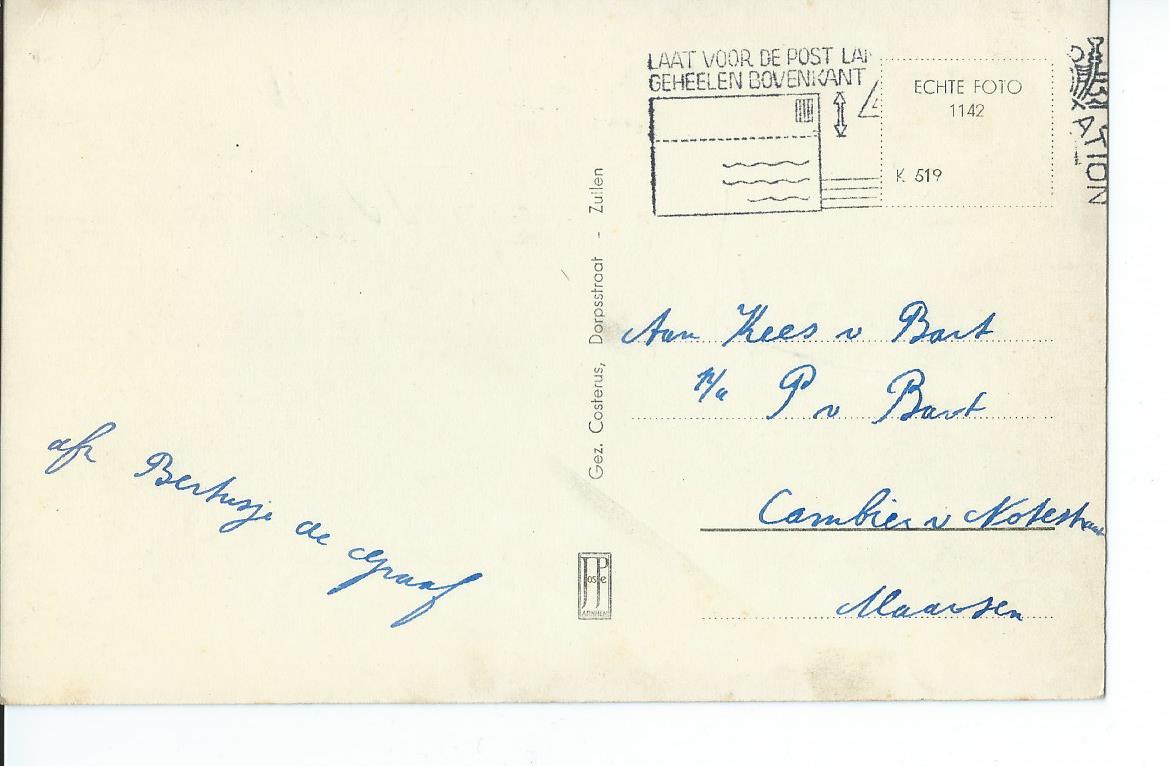 LAAT VOOR DE POST LAN
GEHEELEN BOVENKANT
ECHTE FOTO
1142
K 519
ATION
Gez. Costerus, Dorpsstraat - Zuilen
Aan Kees v Bart
P/a P v Bart
Cambier v Notestraat
Maarsen
afz Bertusje de Graaf
JosPe
ARNHEM